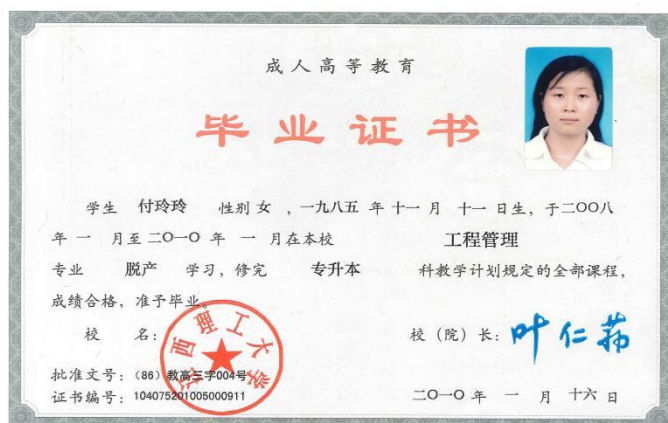 成人高等教育
毕业证书
学生 付玲玲 性别 女 ，一九八五 年 十一 月 十一 日生，于二〇〇八
年 一 月至 二〇一〇 年 一 月在本校 工程管理
专业 脱产 学习，修完 专升本 科教学计划规定的全部课程，
成绩合格，准予毕业。
校 名： 江西理工大学
校（院）长： 叶仁荪
批准文号：（86）教高三字004号
证书编号：104075201005000911
二〇一〇 年 一 月 十六 日